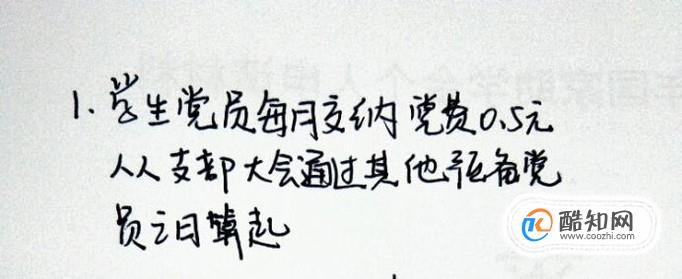 1. 学生党员每月交纳党费0.5元
人人支部大会通过其他预备党
员之日算起
酷知网
www.coozhi.com